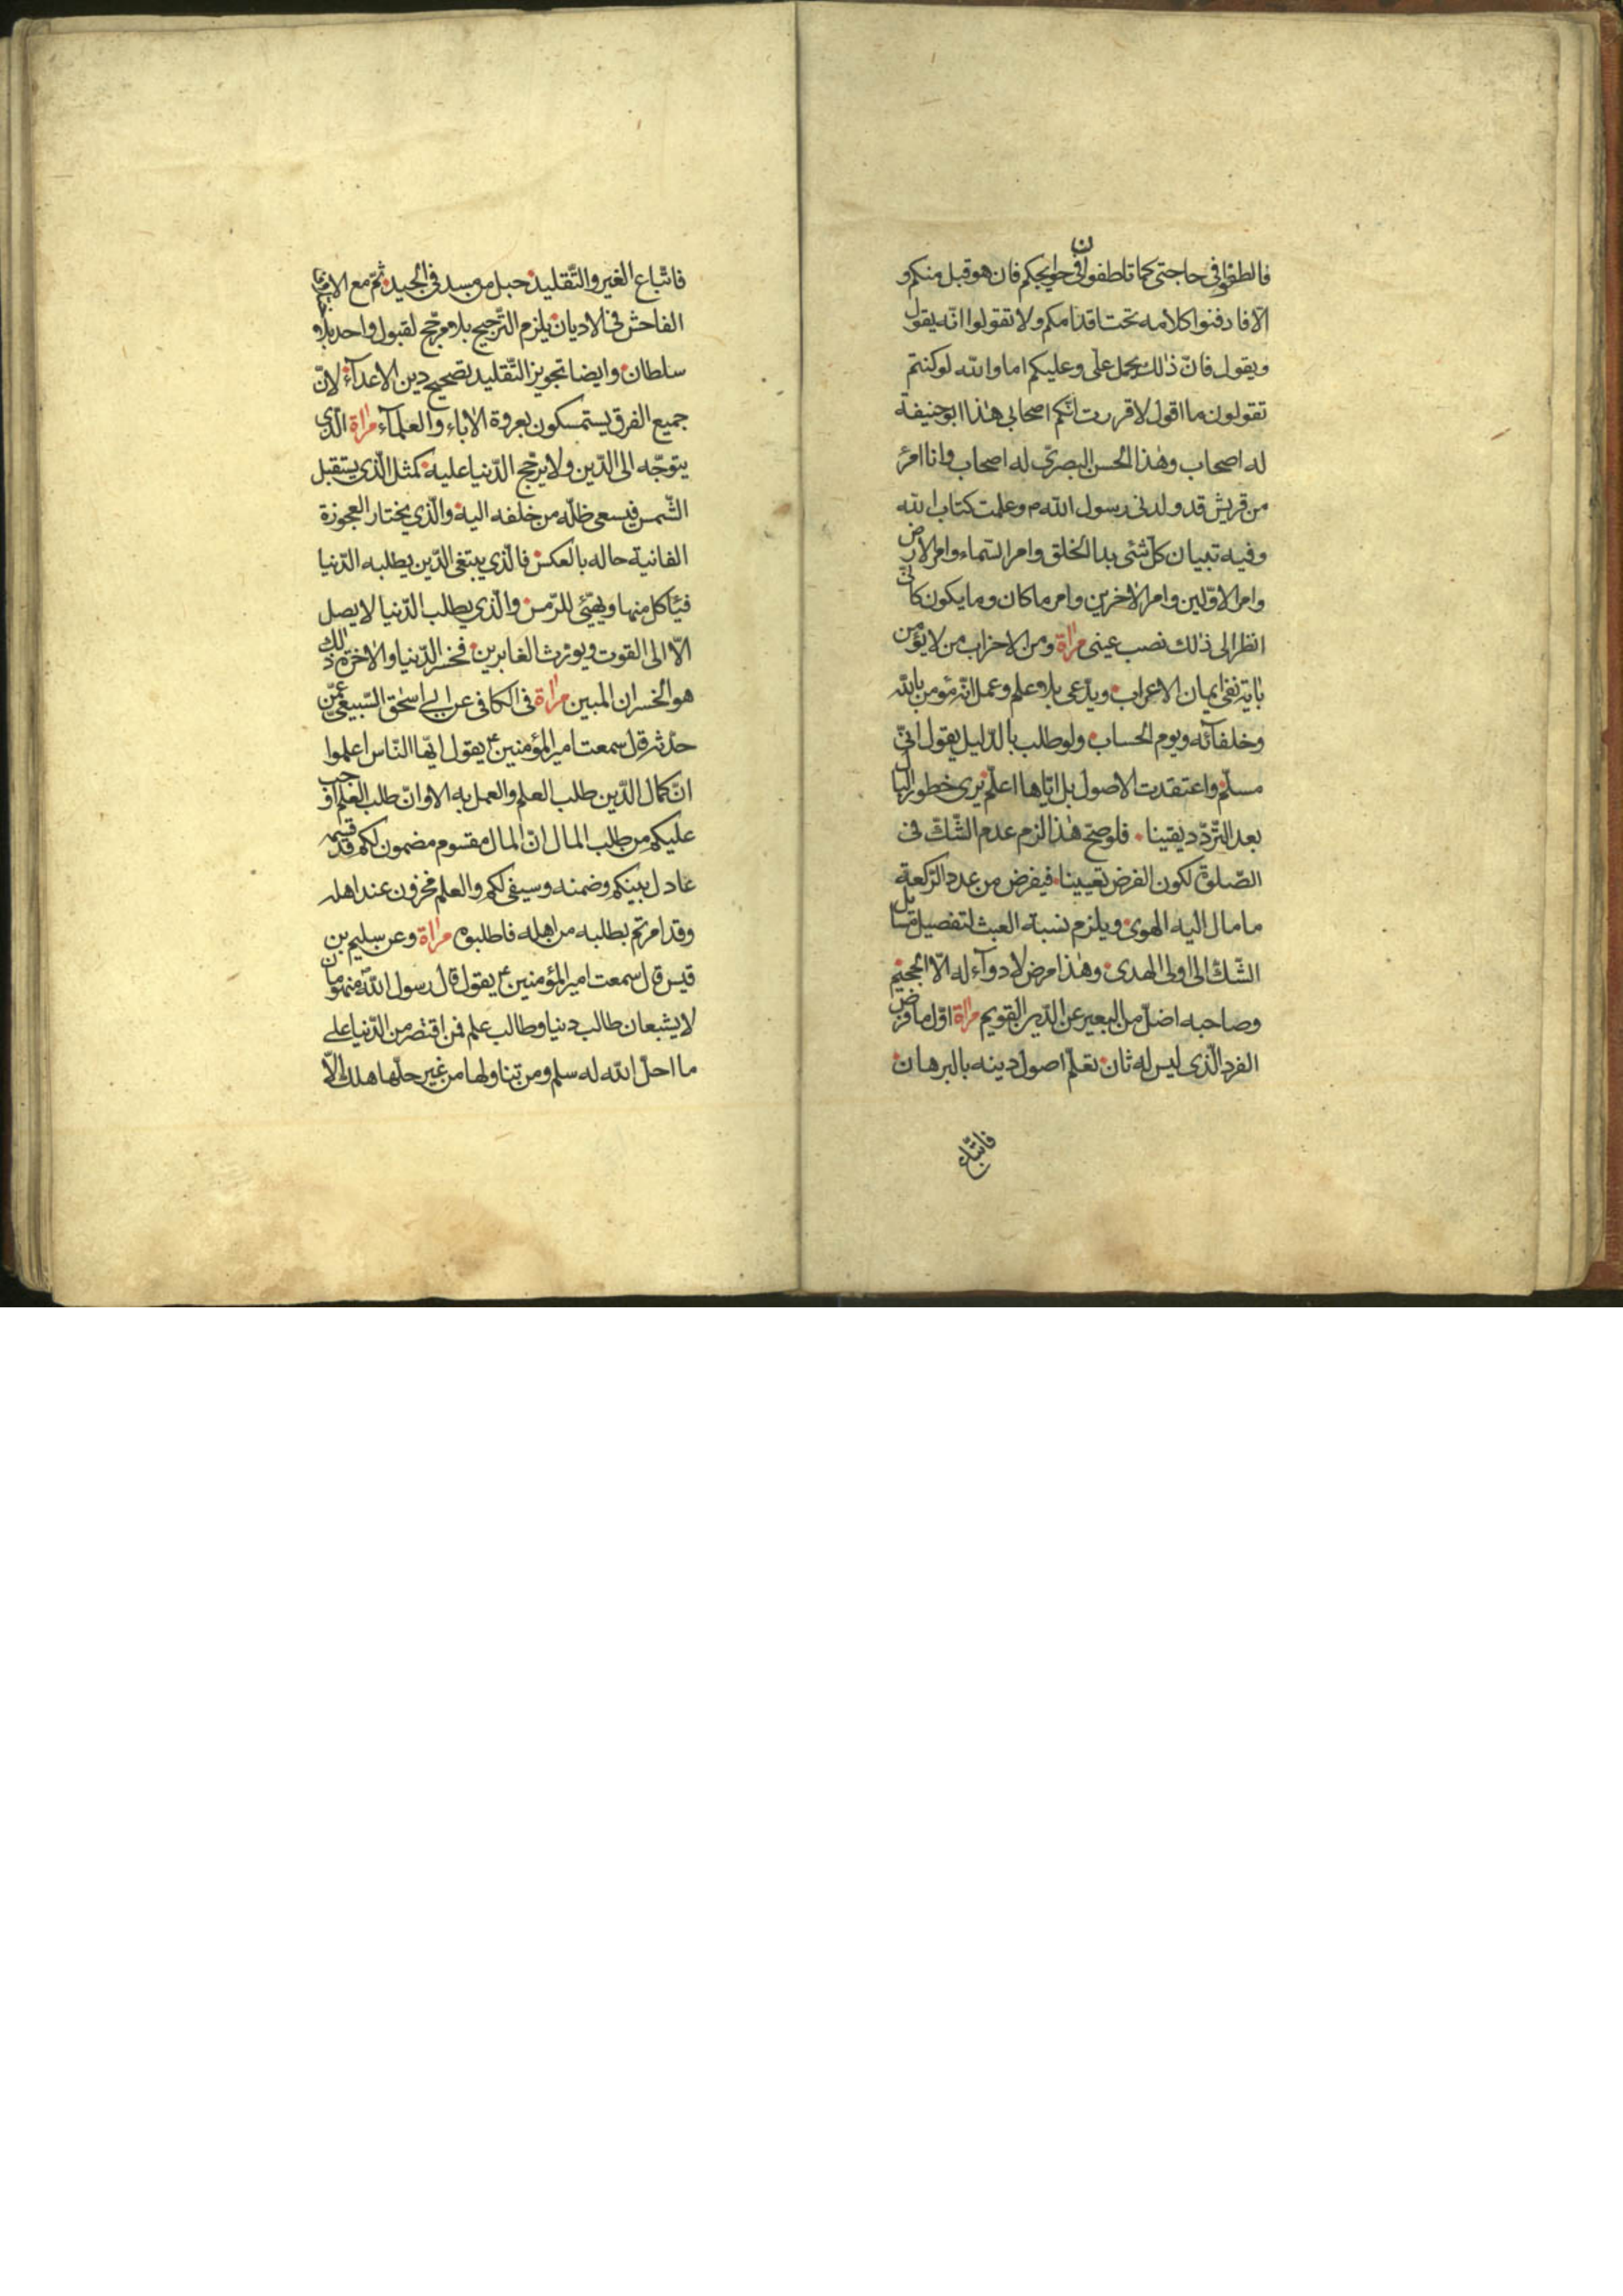 فالطفوا في حاجتي كما تلطفون في حوايجكم فان هو قبل منكم و
الّا فادفنوا كلامه تحت اقدامكم ولا تقولوا انّه يقول
ويقول فانّ ذلك يحمل علّي وعليكم اما والله لو كنتم
تقولون ما اقول لاقررت انّكم اصحابي هذا ابو حنيفة
له اصحاب وهذا الحسن البصرّي له اصحاب وانا امرؤ
من قريش قد ولدني رسول الله م وعلمت كتاب الله
وفيه تبيان كلّ شئ بدا الخلق وامر السّماء وامر الارض
وامر الاوّلين وامر الاخرين وامر ما كان وما يكون كانّي
انظر الى ذلك نصب عيني مراة ومن الاحزاب من لا يؤمن
باية نفي ايمان الاعراب ويدّعي بلا علم وعمل انّه مؤمن بالله
وخلفائه ويوم الحساب ولو طلب بالدّليل يقول انّي
مسلّم واعتقدت الاصول بل ايّاها اعلّم يرى خطور البال
بعد التّردّد يقينا فلو صحّ هذا لزم عدم الشّكّ في
الصّلوة لكون الفرض تعيينا فيفرض من عدد الرّكعة
ما مال اليه الهوى ويلزم نسبة العبث لتفصيل مسايل
الشّكّ الى اولى الهدى وهذا مرض لا دوآء له الّا الجحيم
وصاحبه اضلّ من البعير عن الدّين القويم مراة اوّل ما فرض
الفرد الّذي ليس له ثان تعلّم اصول دينه بالبرهان
فاتّباع
فاتّباع الغير والتّقليد حبل من مسد في الجيد ثمّ مع
الفاحش في الاديان يلزم التّرجيح بلا مرجّح لقبول واحد بلا
سلطان وايضا تجويز التّقليد تصحيح دين الاعدآء لانّ
جميع الفرق يستمسكون بعروة الاباء والعلمآء مراة الّذي
يتوجّه الى الدّين ولا يرجّح الدّنيا عليه كمثل الّذي يستقبل
الشّمس فيسعى ظلّه من خلفه اليه والّذي يختار العجوزة
الفانية حاله بالعكس فالّذي يبتغي الدّين يطلبه الدّنيا
فيأكل منها ويهيّئ للرّمس والّذي يطلب الدّنيا لا يصل
الّا الى القوت ويورث الغابرين فخسر الدّنيا والاخرة ذلك
هو الخسران المبين مراة في الكافي عن ابي اسحق السّبيعي عمّن
حدّثه قال سمعت امير المؤمنين ع يقول ايّها النّاس اعلموا
انّ كمال الدّين طلب العلم والعمل به الا وانّ طلب العلم اوجب
عليكم من طلب المال انّ المال مقسوم مضمون لكم قد قسمه
عادل بينكم وضمنه وسيفي لكم والعلم مخزون عند اهله
وقد امرتم بطلبه من اهله فاطلبوه مراة وعن سليم بن
قيس قال سمعت امير المؤمنين ع يقول قال رسول الله منهومان
لا يشبعان طالب دنيا وطالب علم فمن اقتصر من الدّنيا على
ما احلّ الله له سلم ومن تناولها من غير حلّها هلك الّا